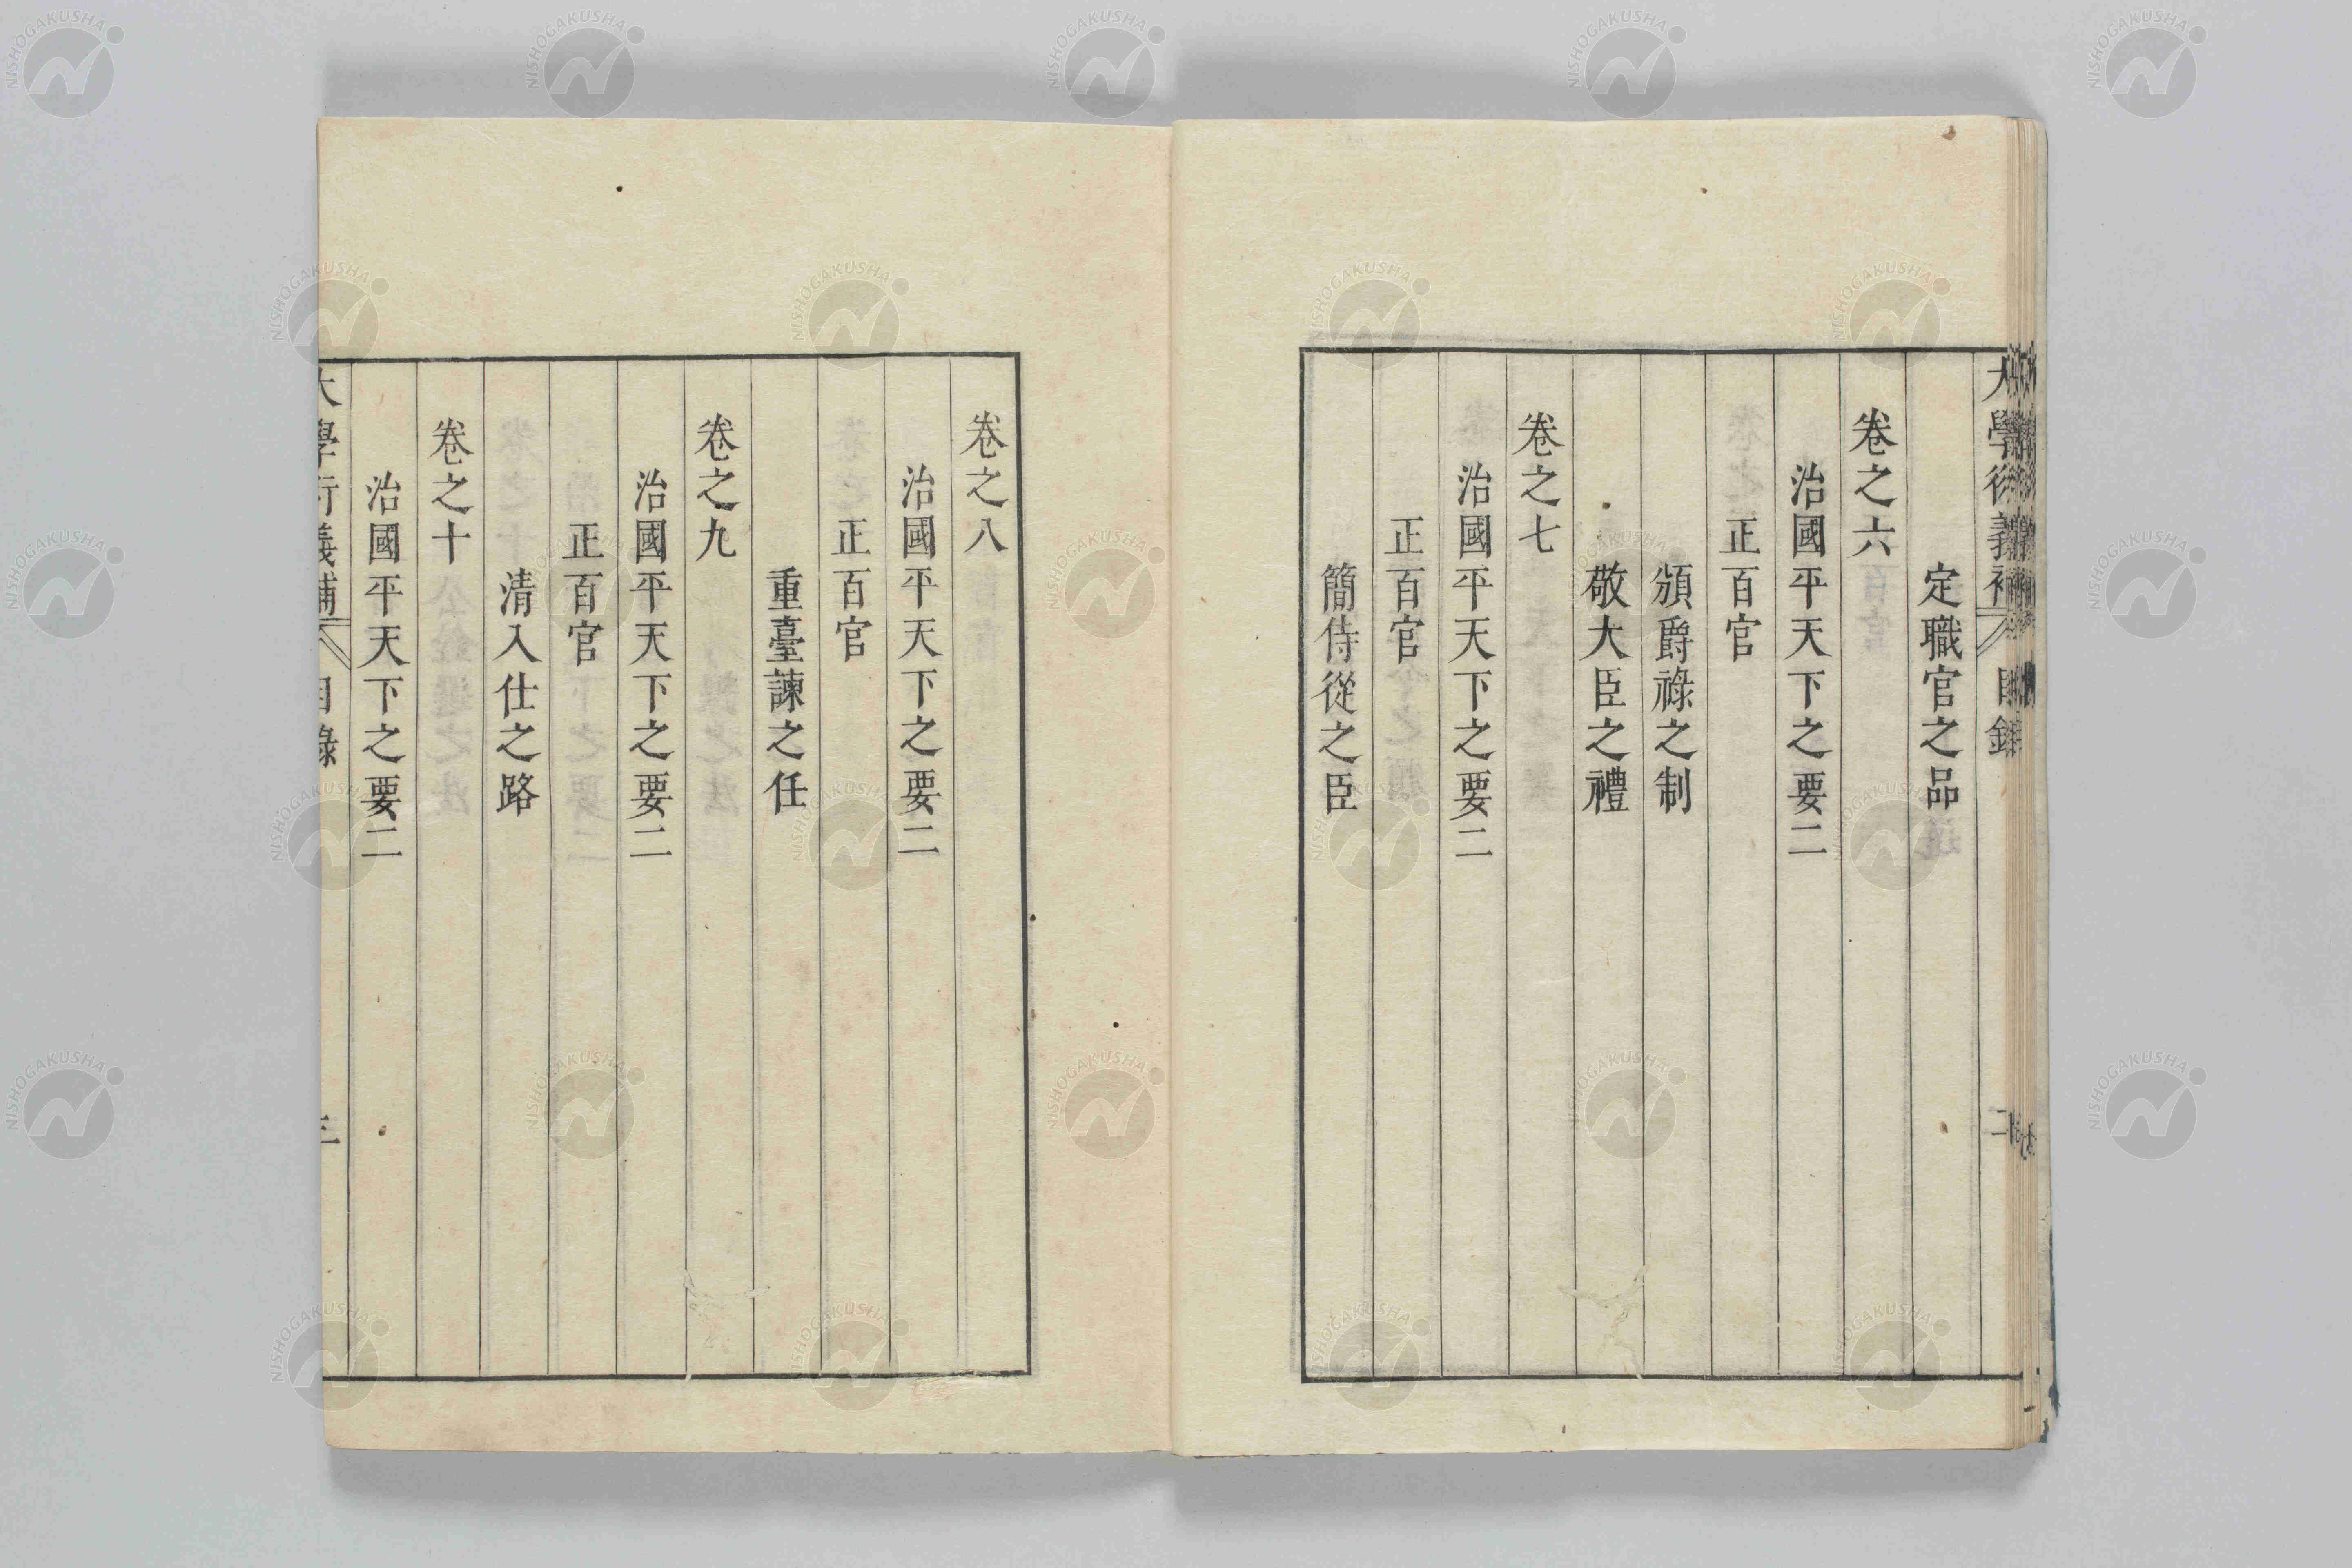 大學衍義補 目錄 二
定職官之品
卷之六
治國平天下之要二
正百官
頒爵祿之制
敬大臣之禮
卷之七
治國平天下之要二
正百官
簡侍從之臣
卷之八
治國平天下之要二
正百官
重臺諫之任
卷之九
治國平天下之要二
正百官
清入仕之路
卷之十
治國平天下之要二
大學衍義補 目錄 三
NISHOGAKUSHA